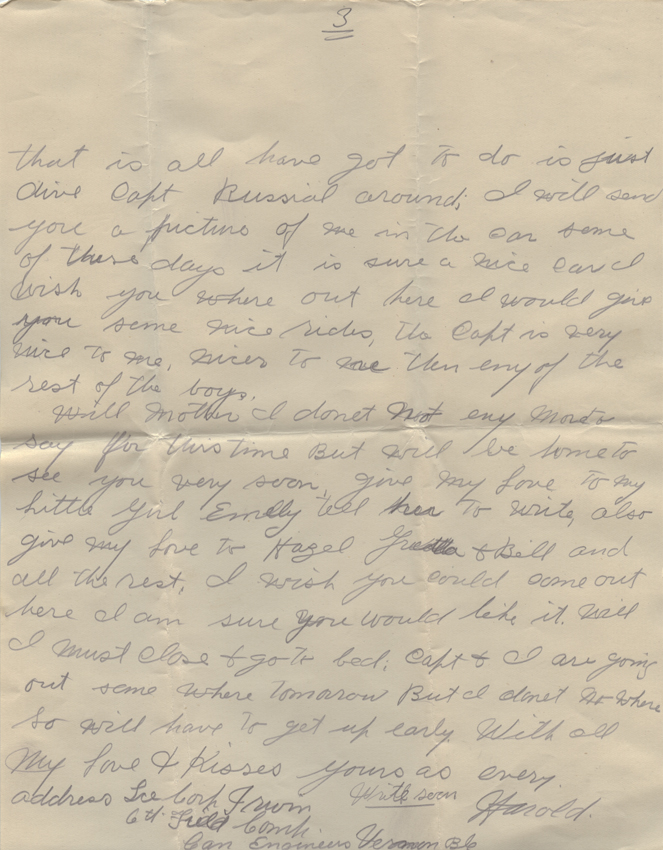 3
that is all have got to do is just
dive Capt Russial around; I will send
you a picture of me in the car some
of these days it is sure a nice car I
wish you where out here I would give
you some nice rides, the Capt is very
nice to me, nicer to me then eny of the
rest of the boys.
Will Mother I donet not eny more to
say for this time But will be home to
see you very soon, give my love to my
little girl Emelly tell her to write, also
give my love to Hazel & Bill and
all the rest, I wish you could come out
here I am sure you would like it. Will
I must close & go to bed; Capt & I are going
out some where tomorrow But I donet where
so will have to get up early With all
My love & Kisses yours as every
Write soon
Harold.
address Corp
6th Field Comp.
Can Engineers Vernon BC